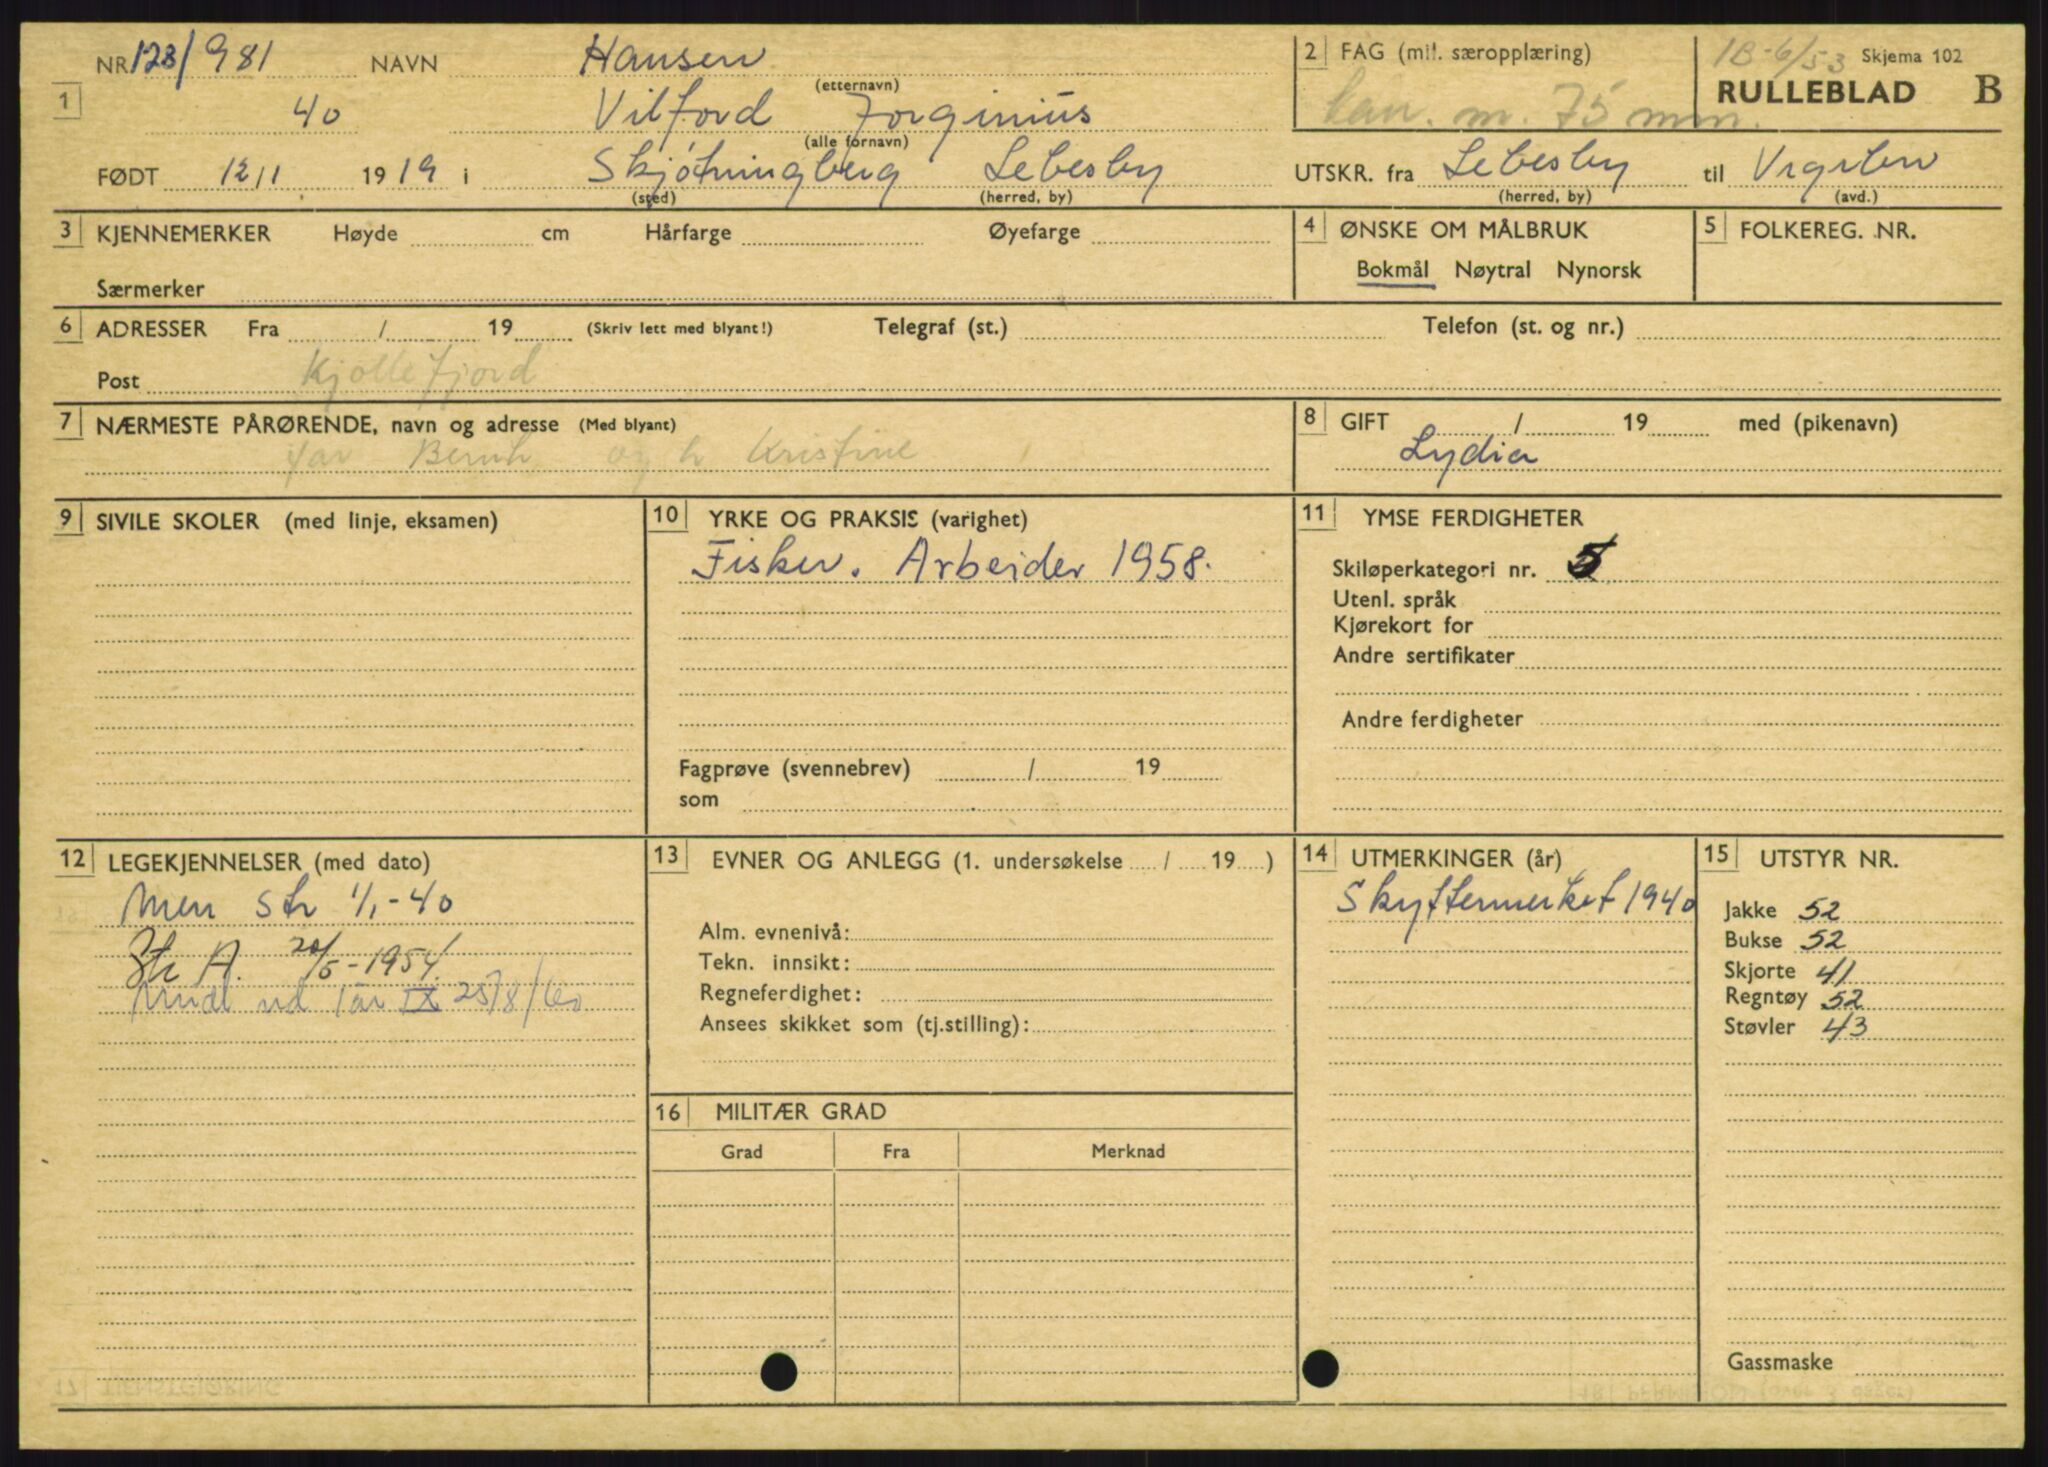 NR 128/981 NAVN Hansen (etternavn)
1 40 Vilford Jorginius (alle fornavn)
FØDT 12/1 1919 i Skjøtningberg (sted) Lebesby (herred, by)
2 FAG (mil. særopplæring) kan. m. 75 mm.
1B-6/53 Skjema 102
RULLEBLAD B
UTSKR. fra Lebesby (herred, by) til (avd.)
3 KJENNEMERKER Høyde cm Hårfarge Øyefarge
Særmerker
4 ØNSKE OM MÅLBRUK
Bokmål Nøytral Nynorsk
5 FOLKEREG. NR.
6 ADRESSER Fra / 19 (Skriv lett med blyant!) Telegraf (st.) Telefon (st. og nr.)
Post Kjøllefjord
7 NÆRMESTE PÅRØRENDE, navn og adresse (Med blyant)
far Bernh og h Kristine
8 GIFT / 19 med (pikenavn)
Lydia
9 SIVILE SKOLER (med linje, eksamen)
10 YRKE OG PRAKSIS (varighet)
Fisker. Arbeider 1958.
Fagprøve (svennebrev) / 19
som
11 YMSE FERDIGHETER
Skiløperkategori nr. 5
Utenl. språk
Kjørekort for
Andre sertifikater
Andre ferdigheter
12 LEGEKJENNELSER (med dato)
Men str 1/1-40
Str A. 20/5-1954.
ud 1 år IX 25/8/60
13 EVNER OG ANLEGG (1. undersøkelse / 19 )
Alm. evnenivå:
Tekn. innsikt:
Regneferdighet:
Ansees skikket som (tj.stilling):
14 UTMERKINGER (år)
Skyttermerket 1940
15 UTSTYR NR.
Jakke 52
Bukse 52
Skjorte 41
Regntøy 52
Støvler 43
Gassmaske
16 MILITÆR GRAD
Grad Fra Merknad